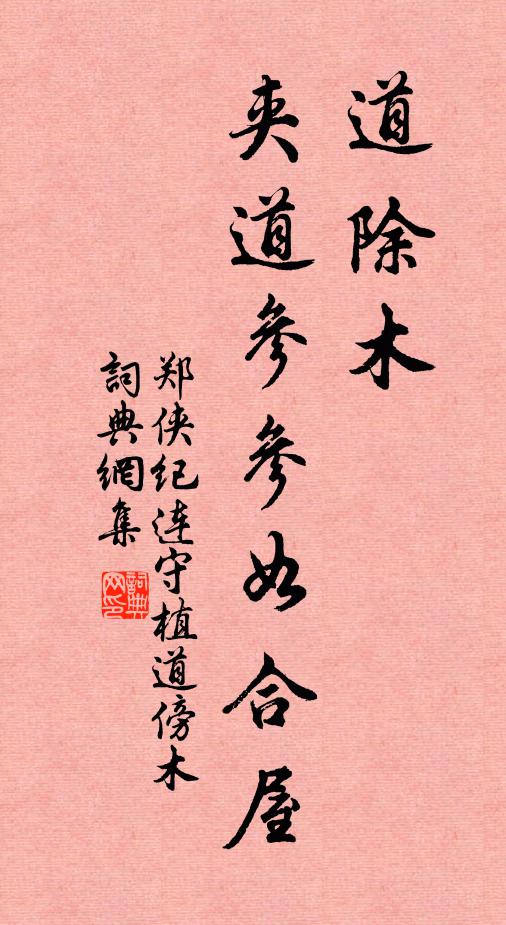 道除木
夹道參參如合屋
郑侠纪连守植道傍木
詞典網集
詞典
网印